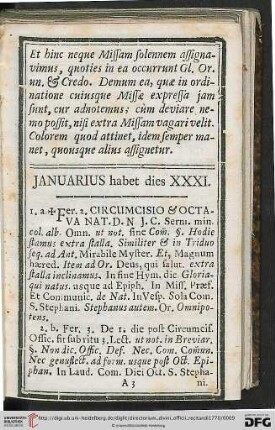 Et hinc neque Missam solennem assigna-
vimus, quoties in ea occurrunt Gl. Or.
un. & Credo. Demum ea, quæ in ordi-
natione cuiusque Missæ expressa jam
sunt, cur adnotemus; cùm deviare ne-
mo possit, nisi extra Missam vagari velit.
Colorem quod attinet, idem semper ma-
net, quousque alius assignetur.
JANUARIUS habet dies XXXI.
1. a ✠ Fer. 2. CIRCUMCISIO & OCTA-
VA NAT. D. N. J. C. Sem. min.
col. alb. Omn. ut not. sine Com. §. Hodie
stamus extra stalla. Similiter & in Triduo
seq. ad Ant. Mirabile Myster. Et, Magnum
hæred. Item ad Or. Deus, qui salut. extra
stalla inclinamus. In fine Hym. dic. Gloria-
qui natus. usque ad Epiph. In Miss. Præf.
Et Communic. de Nat. In Vesp. Sola Com.
S. Stephani. Stephanus autem. Or. Omnipo-
tens.
2. b. Fer. 3. De 1. die post Circumcis.
Offic. fit sub ritu 3. Lect. ut not. in Breviar.
§. Non dic. Offic. Def. Nec. Com. Comun.
Nec genuflect. ad form. usque post Oct. Epi-
phan. In Laud. Com. Diei Oct. S. Stepha-
A 3 ni.
UNIVERSITÄTS-
BIBLIOTHEK
HEIDELBERG
© Universitätsbibliothek Heidelberg
DFG